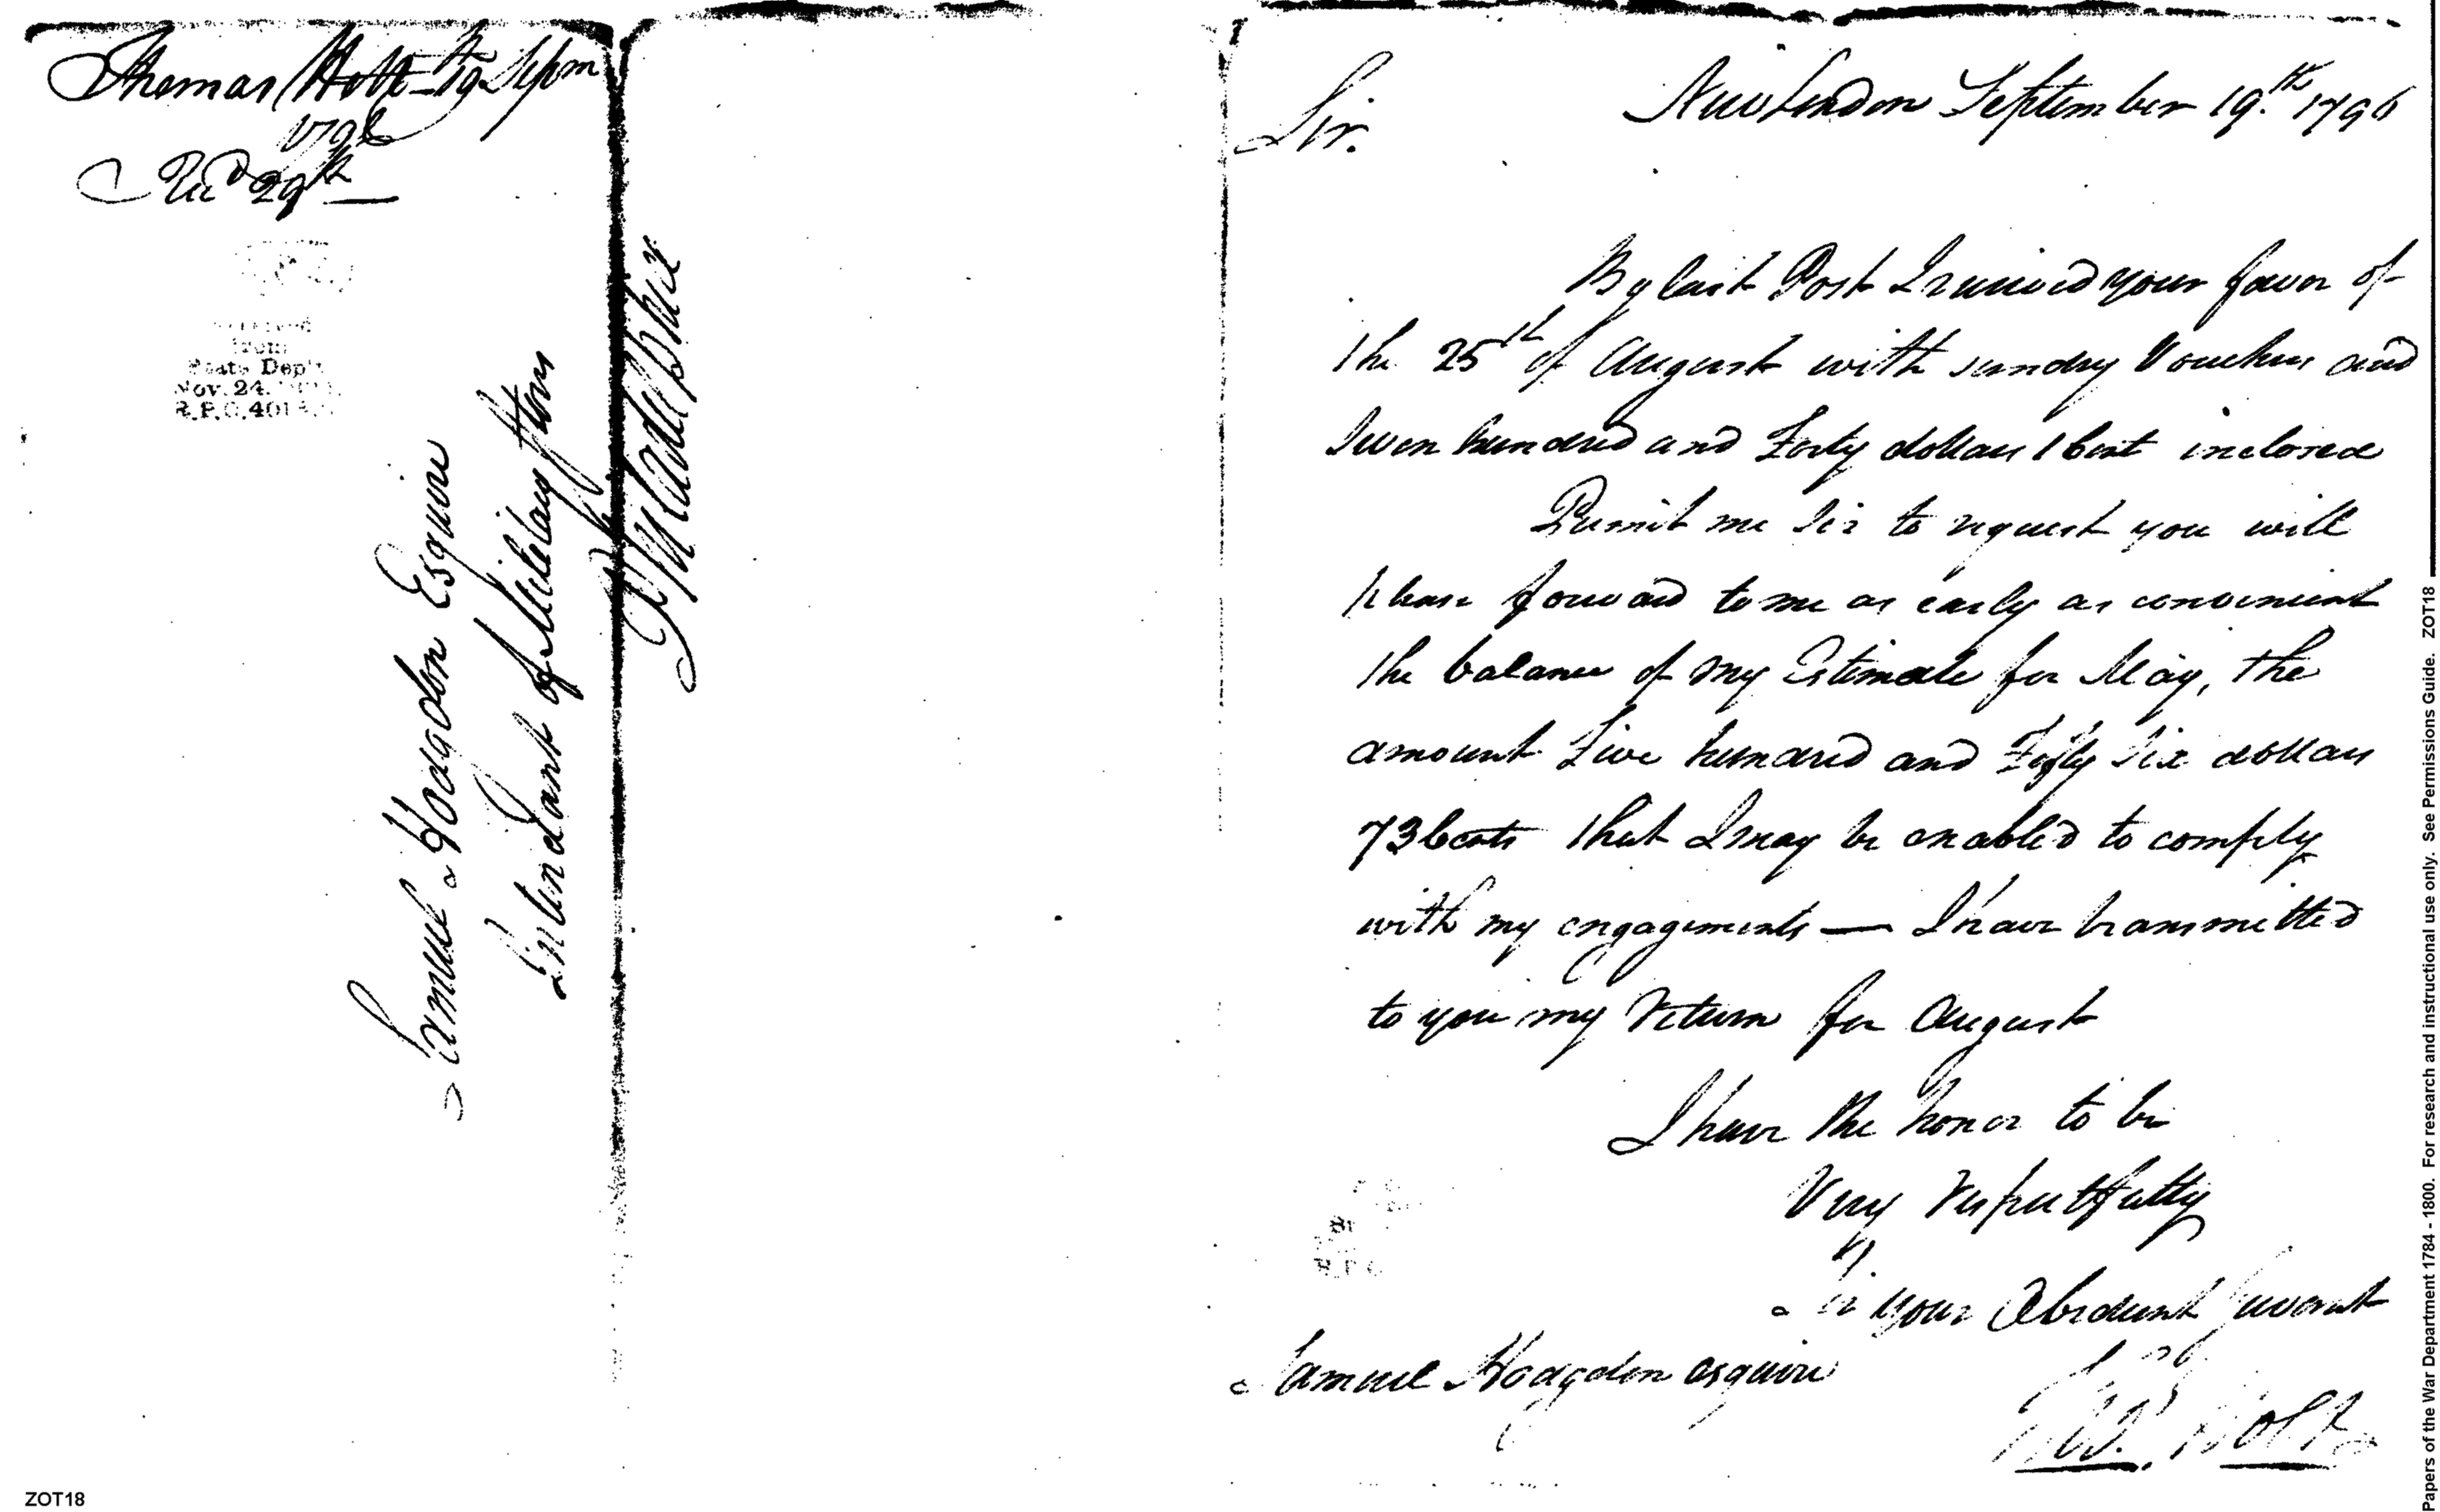 Thomas Holt 19th Sepm
1796
Recd 29th
State Dep't
Nov. 24.
R.P.C. 401
Samuel Hodgdon Esquire
Intendant of Military Stores
Philadelphia
New London September 19.th 1796
Sir.
By last Post I received your favor of
the 25th of August with sundry Vouchers and
Seven hundred and Forty dollars 1 Cent inclosed
Permit me Sir to request you will
please forward to me as early as convenient
the balance of my Estimate for May, the
amount Five hundred and Fifty Six dollars
73 Cents that I may be enabled to comply
with my engagements — I have transmitted
to you my Return for August
I have the honor to be
Very respectfully
Sir your Obedient Servant
Samuel Hodgdon esquire
Holt
Papers of the War Department 1784 - 1800. For research and instructional use only. See Permissions Guide. ZOT18
ZOT18